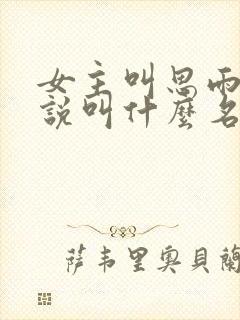 女主叫思雨
說叫什麼名
萨韦里奥貝蘭